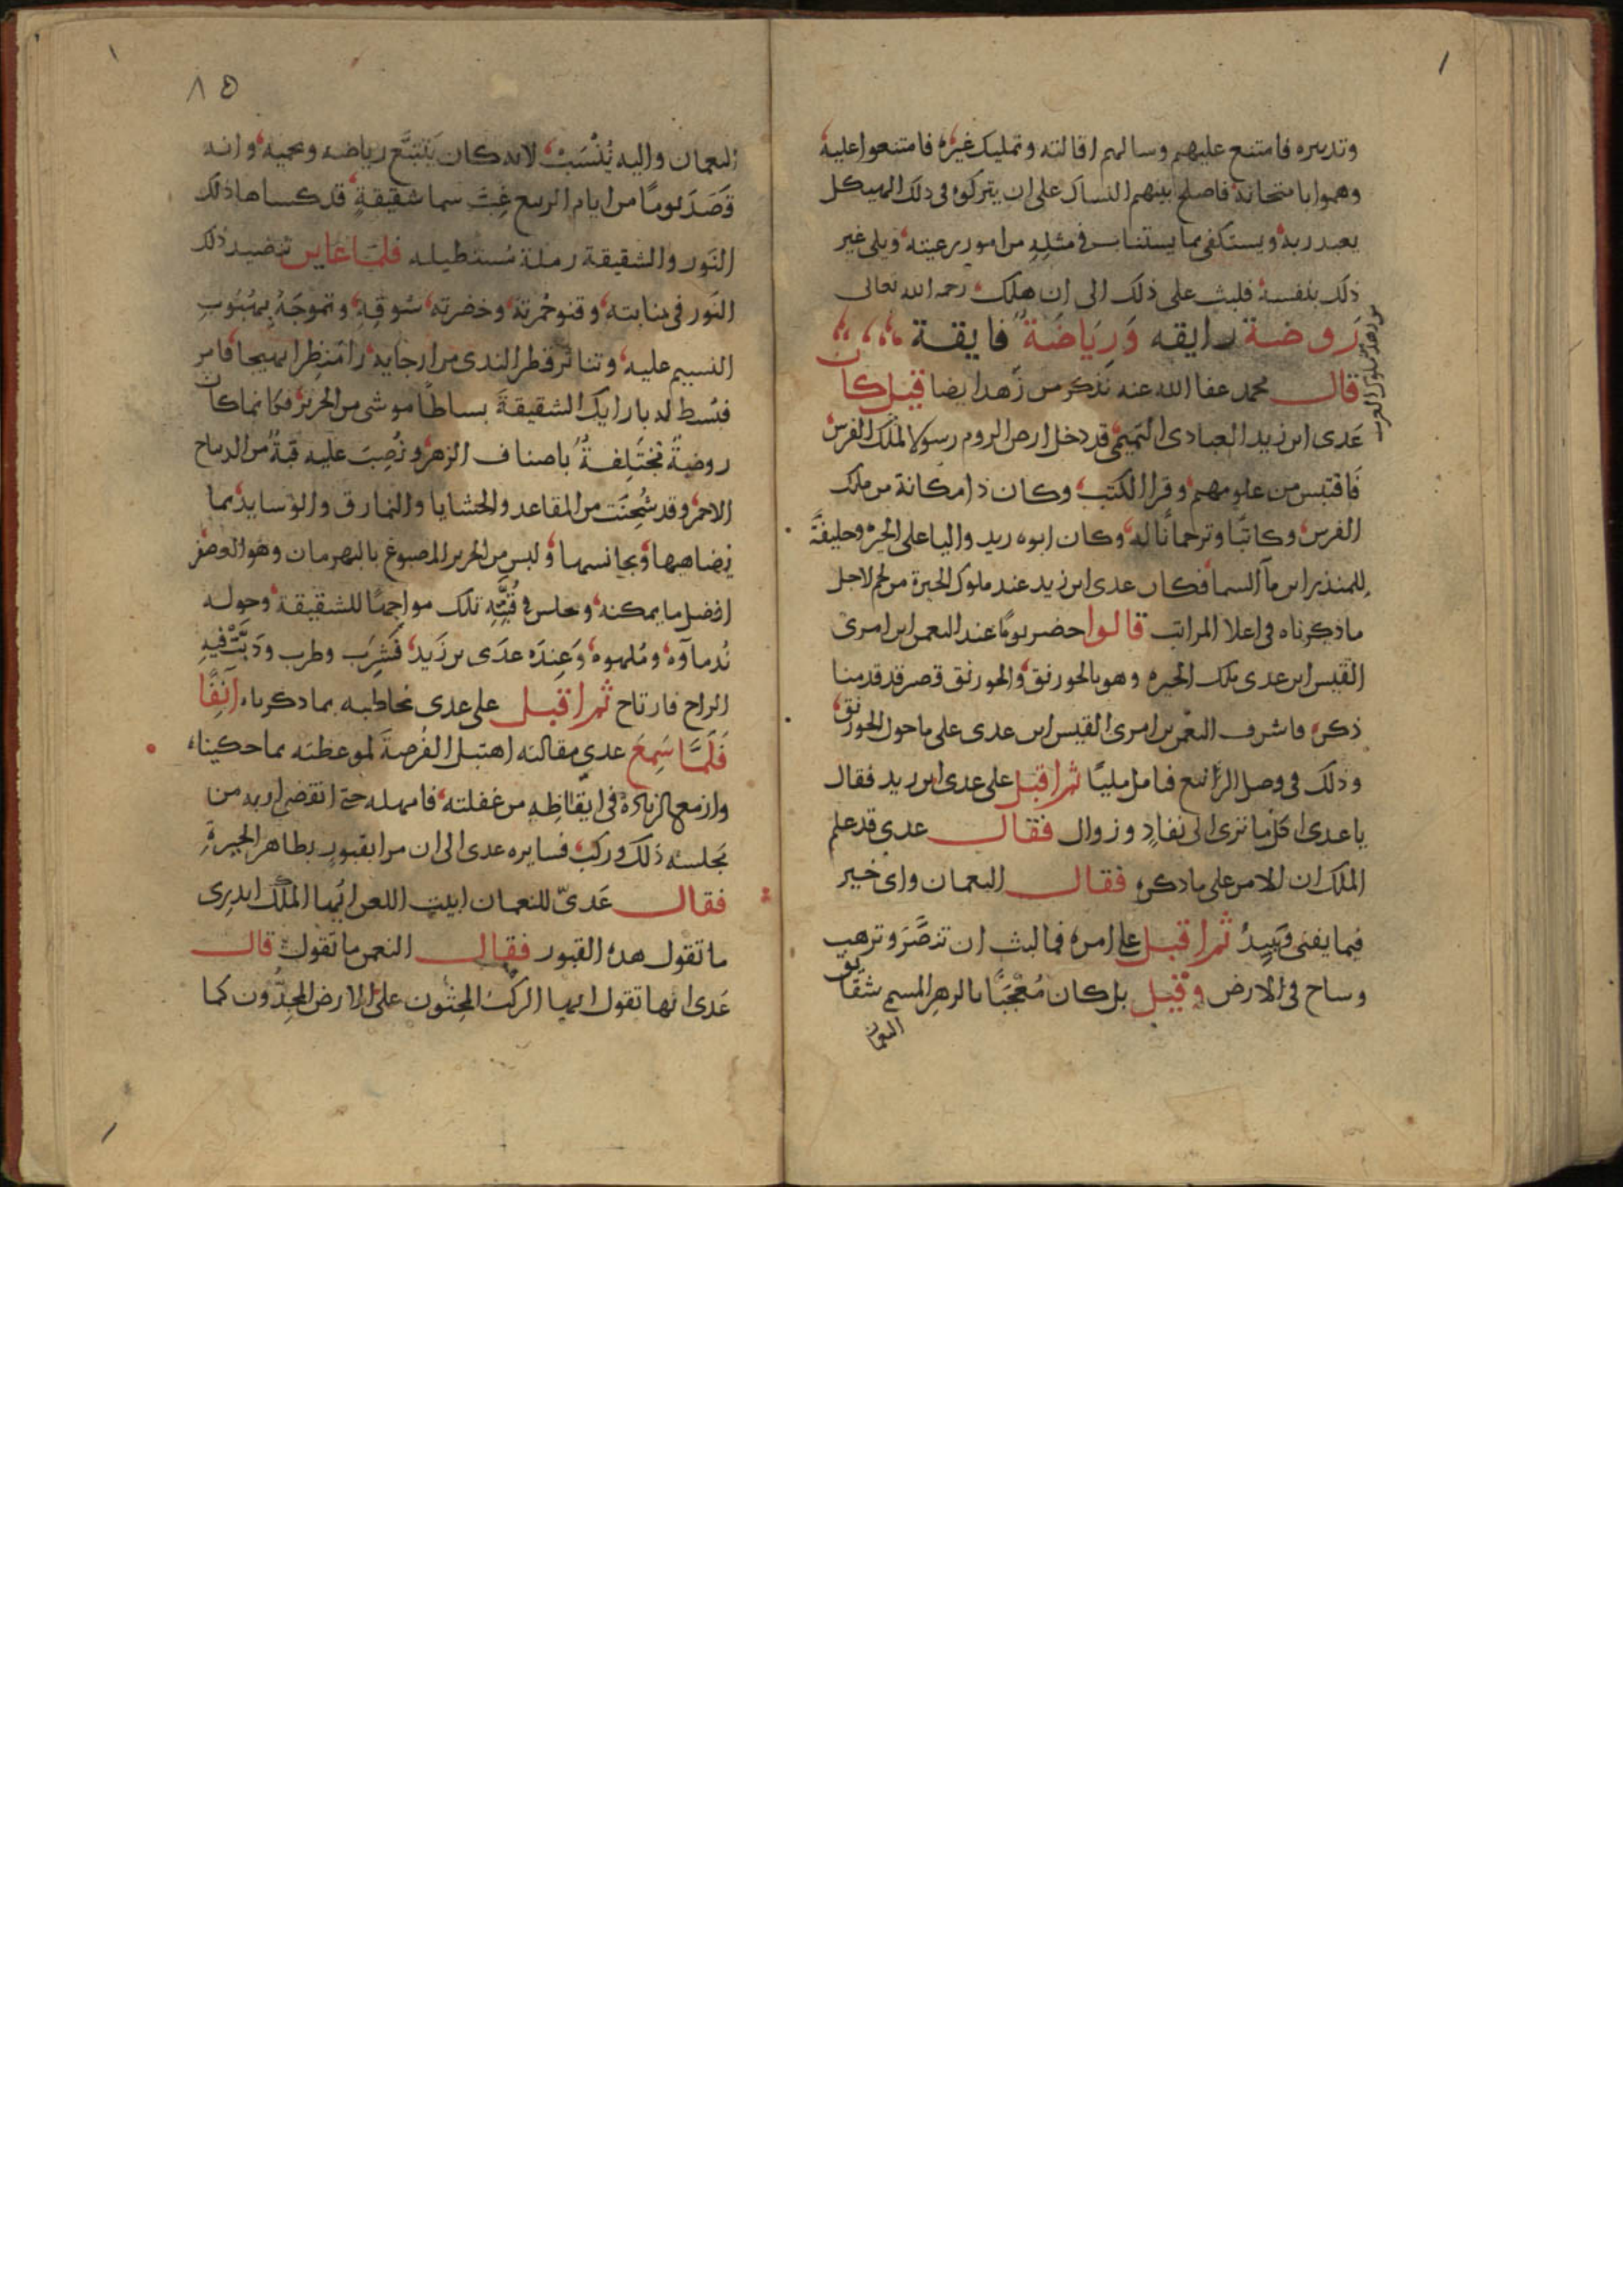 وتدبيره فامتنع عليهم وسالهم اقالته وتمليك غيره فامتنعوا عليه
وهموا بامتحانه فاصلح بينهم النساك على ان يتركوه في ذلك الهيكل
يعبد ربه ويستكفى بما يستناب في مثله من امور رعيته ويلى غير
ذلك بنفسه فلبث على ذلك الى ان هلك رحمه الله تعالى
رَوضة رايقه وَرِيَاضَة فايقة
من زهد من ملوك العرب
قال محمد عفا الله عنه نذكر من زهد ايضا قيل كان
عَدى ابن زيد العبادى التميمى قد دخل ارض الروم رسولا لملك الفرس
فاقتبس من علومهم وقرا الكتب وكان ذا مكانة من ملك
الفرس وكاتبًا وترجمانًا له وكان ابوه زيد واليا على الحيرة وخليفةً
للمنذر ابن مآ السما فكان عدى ابن زيد عند ملوك الحيرة من لخم لاجل
ما ذكرناه في اعلا المراتب قالوا حضر يومًا عند النعمن ابن امرئ
القيس ابن عدى ملك الحيره وهو بالخورنق والخورنق قصر قد قدمنا
ذكره فاشرف النعمن بن امرى القيس ابن عدى على ما حول الخورنق
وذلك في فصل الربيع فتامل مليًا ثم اقبل على عدى ابن زيد فقال
يا عدى اكل ما نرى الى نفادٍ وزوال فقال عدى قد علم
الملك ان الامر على ما ذكره فقال النعمان واى خير
فيما يفنى ويبيدُ ثم اقبل على امره فما لبث ان تنصَّرَ وترهب
وساح في الارض وقيل بل كان مُعْجَبًا بالزهر المسمى شقايق
النعمان
٨٥
النعمان واليه يُنْسَبُ لانه كان يَتتبَّع رياضه ويحميه وانه
قَصَدَ يومًا من ايام الربيع غِبَّ سما شقيقةٍ قد كساها ذلك
النَور والشقيقة رملة مُستطيله فلمّا عاين تنضيد ذلك
النَور في منابته وقنو حُمرته وخضرته سُوقِهِ وتموجَهُ بهُبُوبِ
النسيم عليه وتناثر قطر الندى من ارجايه راى مَنظِرا بهيجا فامر
فبُسِط له بازا تلك الشقيقةَ بساطًا موشى من الحرير فكانما كان
روضةً مُخْتَلِفةً باصناف الزهر ونُصِبَ عليه قبةً من الديباج
الاحمر وقد شُحِنَت من المقاعد والحشايا والنمارق والوَسايد بما
يُضاهيها ويجانسها ولبس من الحرير المصبوغ بالبهرمان وهو العصفر
افضل ما يمكنه وجلس في قُبَّتِهِ تلك مواجهًا للشقيقة وحوله
نُدماوُه ومُلهوه وَعِندَه عدَى بن زيد فَشَرِبَ وطرب ودَبَّتْ فيهِ
الراح فارتاح ثم اقبل على عدى فخاطبه بما ذكرناه آنِفًا
فَلَمَّا سَمِعَ عدي مقالته اهتبل الفُرصةَ لموعظته بما حكيناه
وازمع الزيادة في ايقاظِهِ من غفلته فامهله حتى انقضى اربه من
مَجلسه ذلك وركب فسايره عدى الى ان مرا بقبورٍ بظاهر الحِيرةِ
فقال عَدىّ للنعمان ابيت اللعن ايُها الملك اتدرى
ما تقول هذه القبور فقال النعمن ما تقول قال
عَدى انها تقول ايها الركب المُخِبّون على الارض المُجِدُّون كما